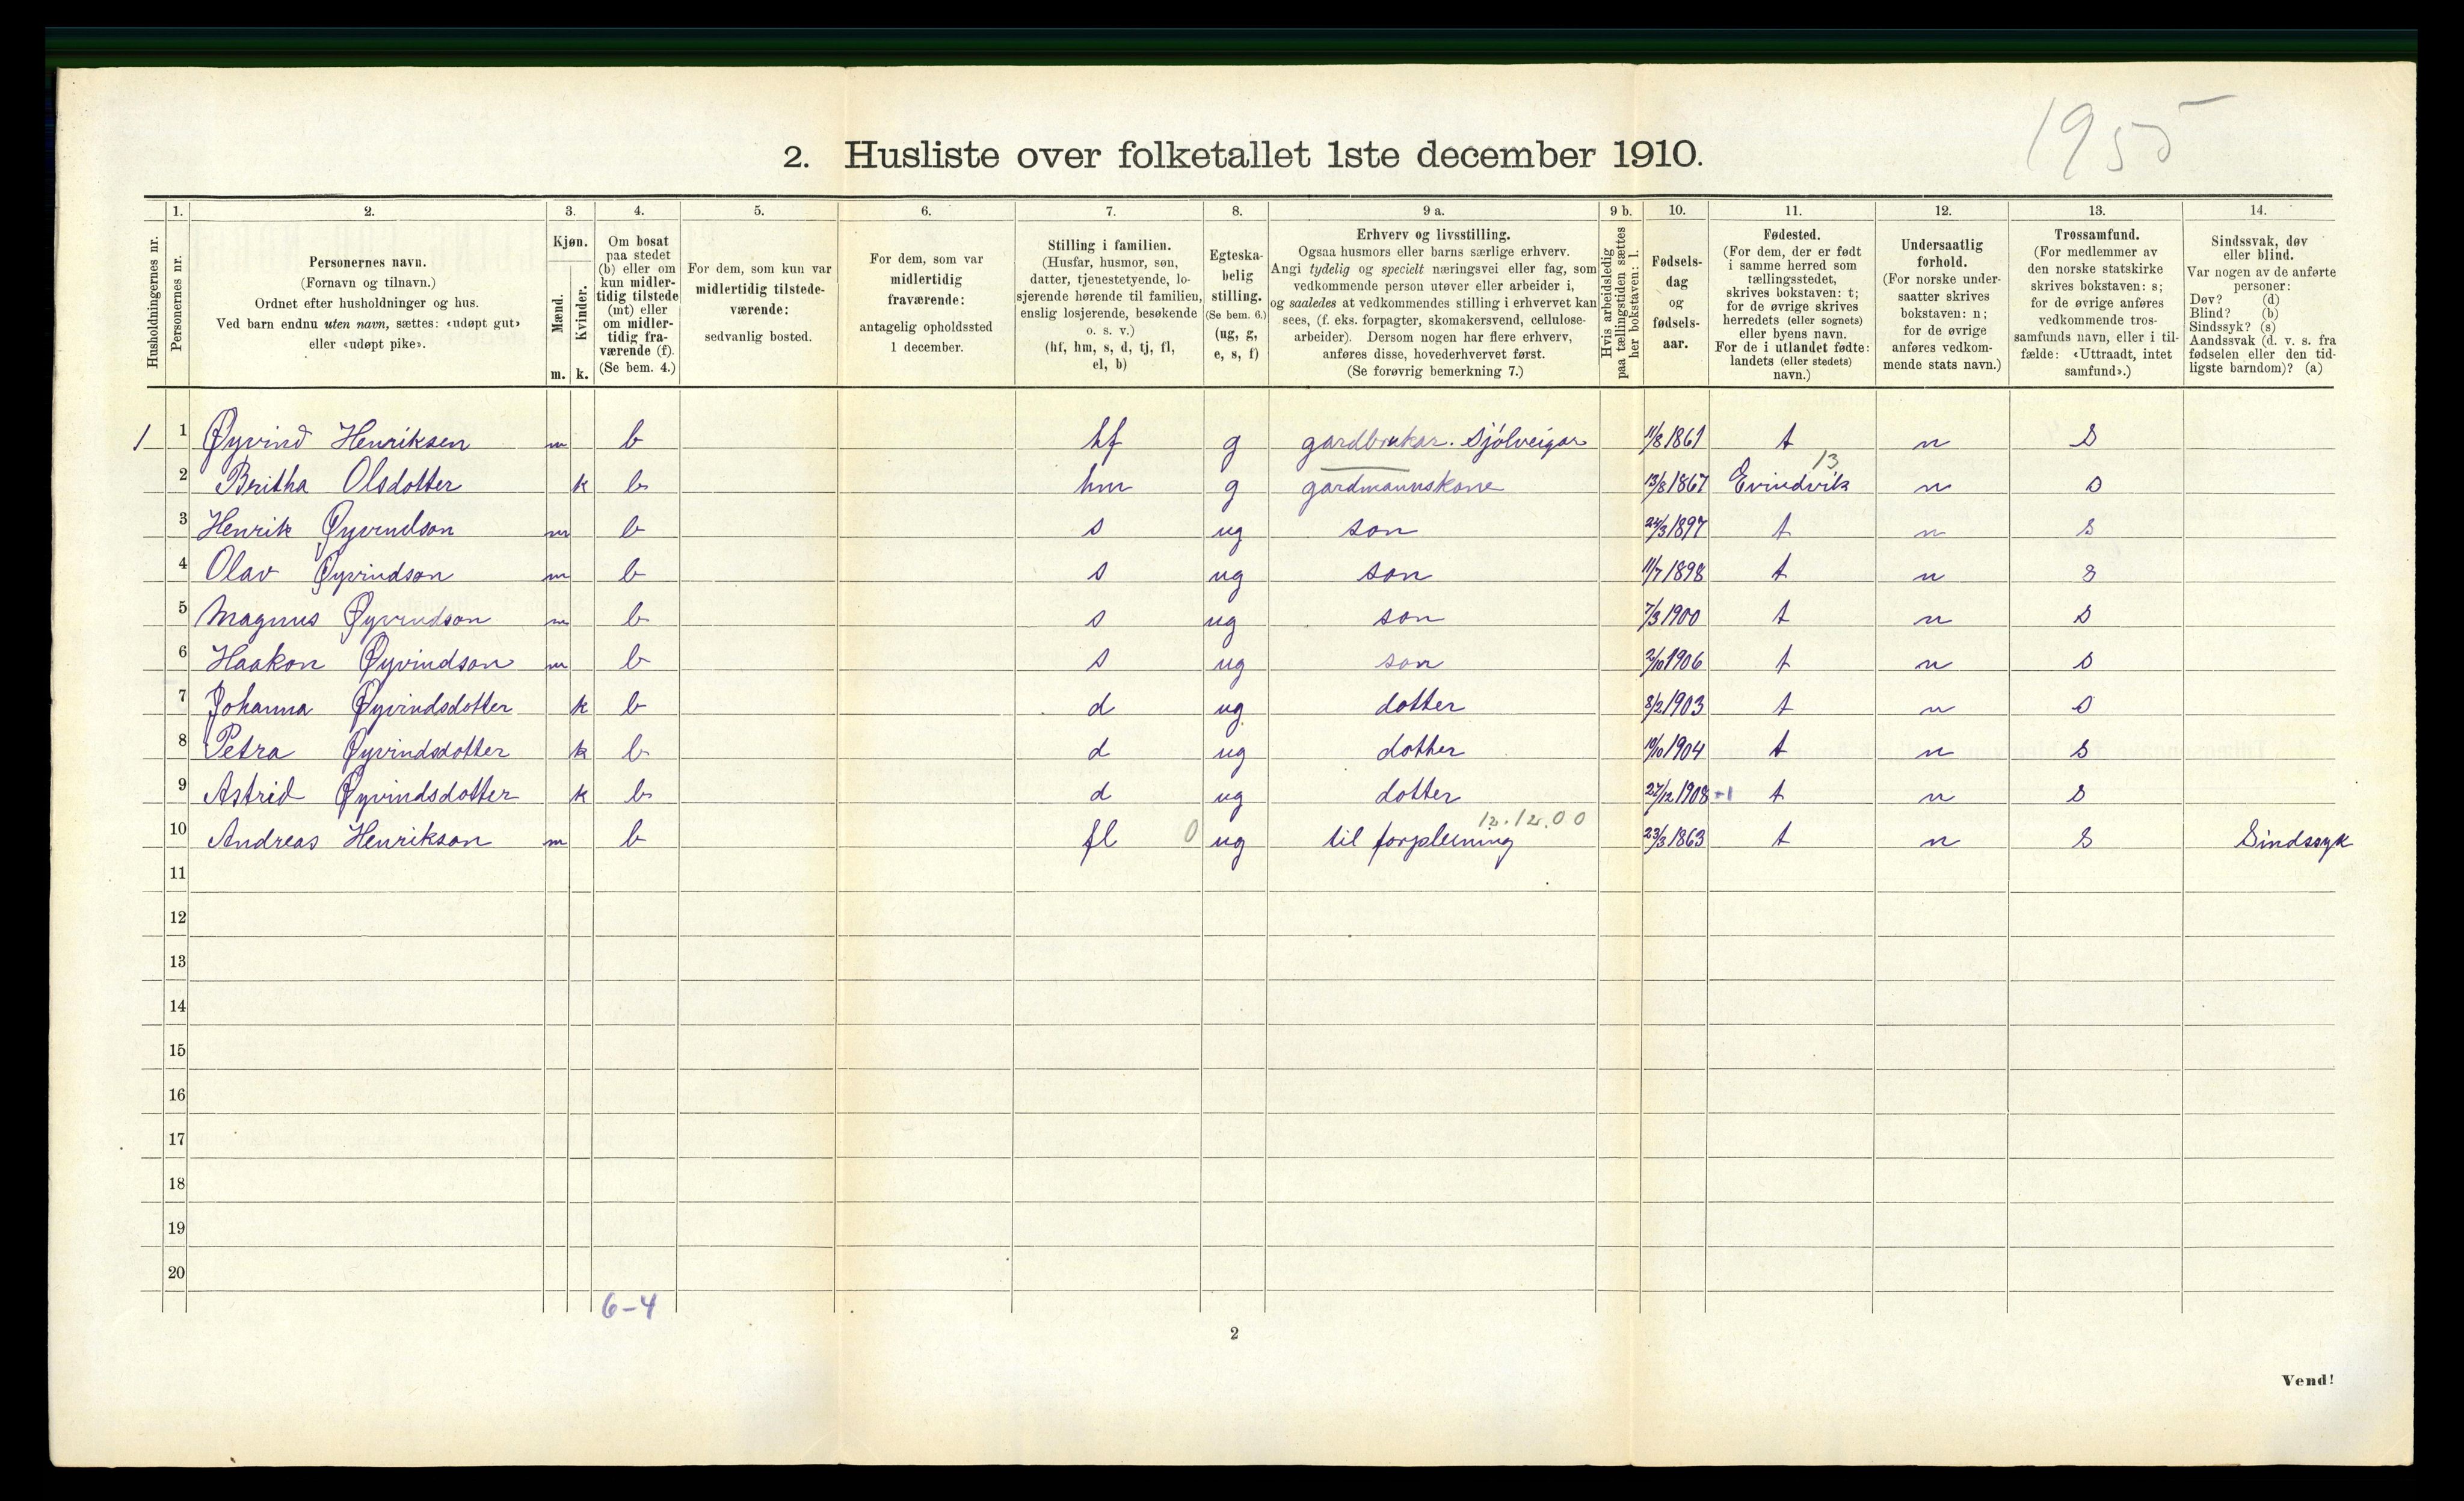 1955
2. Husliste over folketallet 1ste december 1910.
1. 2. 3. 4. 5. 6. 7. 8. 9 a. 9 b. 10. 11. 12. 13. 14.
Husholdningernes nr.
Personernes nr.
Personernes navn.
(Fornavn og tilnavn.)
Ordnet efter husholdninger og hus.
Ved barn endnu uten navn, sættes: «udøpt gut»
eller «udøpt pike».
Kjøn.
Mænd.
Kvinder.
m. k.
Om bosat
paa stedet
(b) eller om
kun midler-
tidig tilstede
(mt) eller
om midler-
tidig fra-
værende (f).
(Se bem. 4.)
For dem, som kun var
midlertidig tilstede-
værende:
sedvanlig bosted.
For dem, som var
midlertidig
fraværende:
antagelig opholdssted
1 december.
Stilling i familien.
(Husfar, husmor, søn,
datter, tjenestetyende, lo-
sjerende hørende til familien,
enslig losjerende, besøkende
o. s. v.)
(hf, hm, s, d, tj, fl,
el, b)
Egteska-
belig
stilling.
(Se bem. 6.)
(ug, g,
e, s, f)
Erhverv og livsstilling.
Ogsaa husmors eller barns særlige erhverv.
Angi tydelig og specielt næringsvei eller fag, som
vedkommende person utøver eller arbeider i,
og saaledes at vedkommendes stilling i erhvervet kan
sees, (f. eks. forpagter, skomakersvend, cellulose-
arbeider). Dersom nogen har flere erhverv,
anføres disse, hovederhvervet først.
(Se forøvrig bemerkning 7.)
Hvis arbeidsledig
paa tællingstiden sættes
her bokstaven: l.
Fødsels-
dag
og
fødsels-
aar.
Fødested.
(For dem, der er født
i samme herred som
tællingsstedet,
skrives bokstaven: t;
for de øvrige skrives
herredets (eller sognets)
eller byens navn.
For de i utlandet fødte:
landets (eller stedets)
navn.)
Undersaatlig
forhold.
(For norske under-
saatter skrives
bokstaven: n;
for de øvrige
anføres vedkom-
mende stats navn.)
Trossamfund.
(For medlemmer av
den norske statskirke
skrives bokstaven: s;
for de øvrige anføres
vedkommende tros-
samfunds navn, eller i til-
fælde: «Uttraadt, intet
samfund».)
Sindssvak, døv
eller blind.
Var nogen av de anførte
personer:
Døv? (d)
Blind? (b)
Sindssyk? (s)
Aandssvak (d. v. s. fra
fødselen eller den tid-
ligste barndom)? (a)
1 1 Øyvind Henriksen m b hf g gardbrukar. Sjølveigar 11/8 1861 t n s
13
2 Britha Olsdotter k b hm g gardmannskone 13/8 1867 Evindvik n s
3 Henrik Øyvindson m b s ug son 24/3 1897 t n s
4 Olav Øyvindson m b s ug son 11/7 1898 t n s
5 Magnus Øyvindson m b s ug son 7/3 1900 t n s
6 Haakon Øyvindson m b s ug son 2/10 1906 t n s
7 Johanna Øyvindsdotter k b d ug dotter 8/2 1903 t n s
8 Petra Øyvindsdotter k b d ug dotter 19/10 1904 t n s
9 Astrid Øyvindsdotter k b d ug dotter 27/12 1908 -1 t n s
12.12.00
10 Andreas Henrikson m b fl 0 ug til forpleining 23/3 1863 t n s Sindssyk
11
12
13
14
15
16
17
18
19
20
6-4
2
Vend!